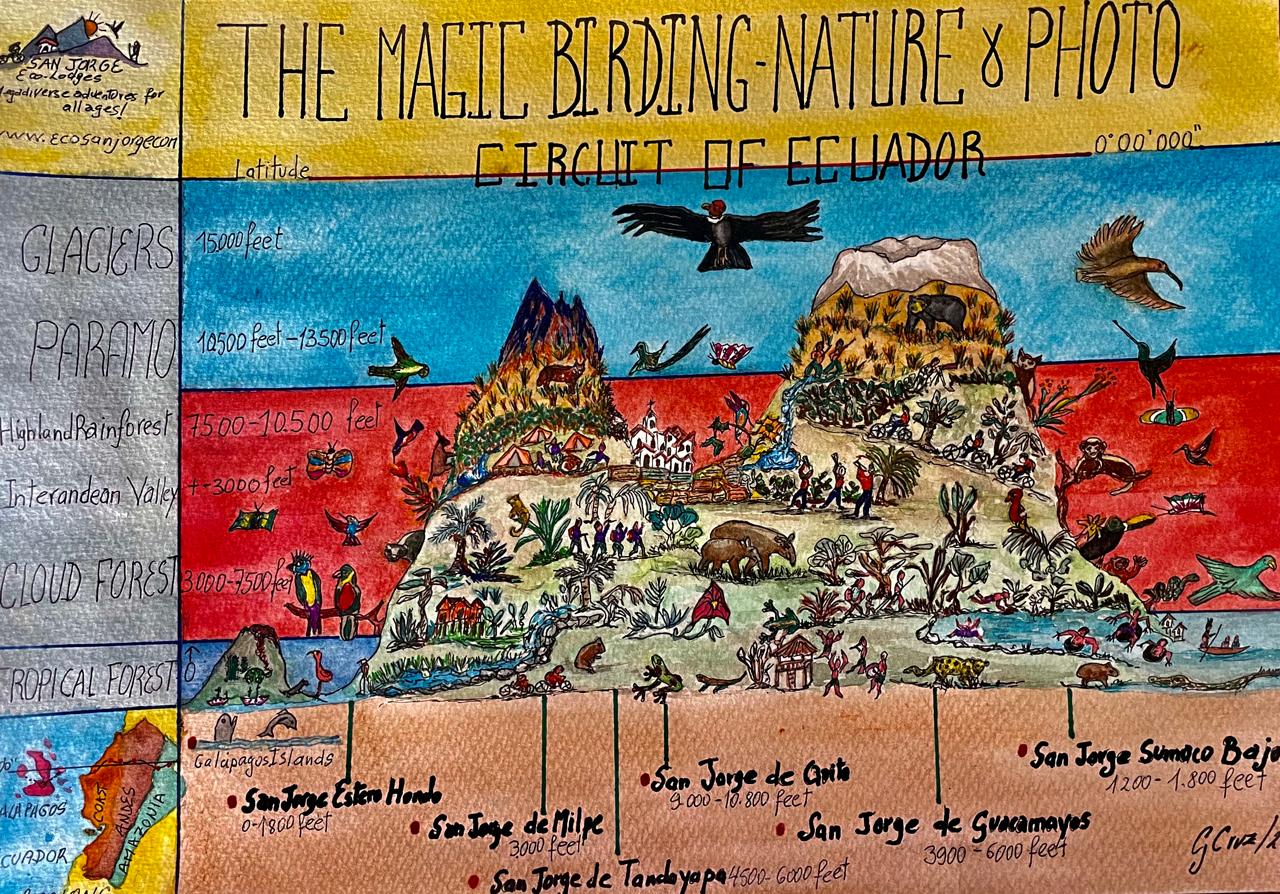 SAN JORGE
Eco-Lodges
egadiverse adventures for
all ages!
www.Ecosanjorge.com
THE MAGIC BIRDING-NATURE & PHOTO
CIRCUIT OF ECUADOR
Latitude
0°00'000"
GLACIERS
15000 feet
PARAMO
10.500 feet - 13.500 feet
Highland Rainforest
7500-10.500 feet
Interandean Valley
+-3000 feet
CLOUD FOREST
3.000-7500 feet
TROPICAL FOREST
0
Galapagos Islands
ALAPAGOS
CUADOR
COAST
ANDES
AMAZONIA
San Jorge Estero Hondo
0-1800 feet
San Jorge de Milpe
3.000 feet
San Jorge de Tandayapa 4500-6000 feet
San Jorge de Quito
9.000-10.800 feet
San Jorge de Guacamayos
3900-6000 feet
San Jorge Sumaco Bajo
1200-1.800 feet